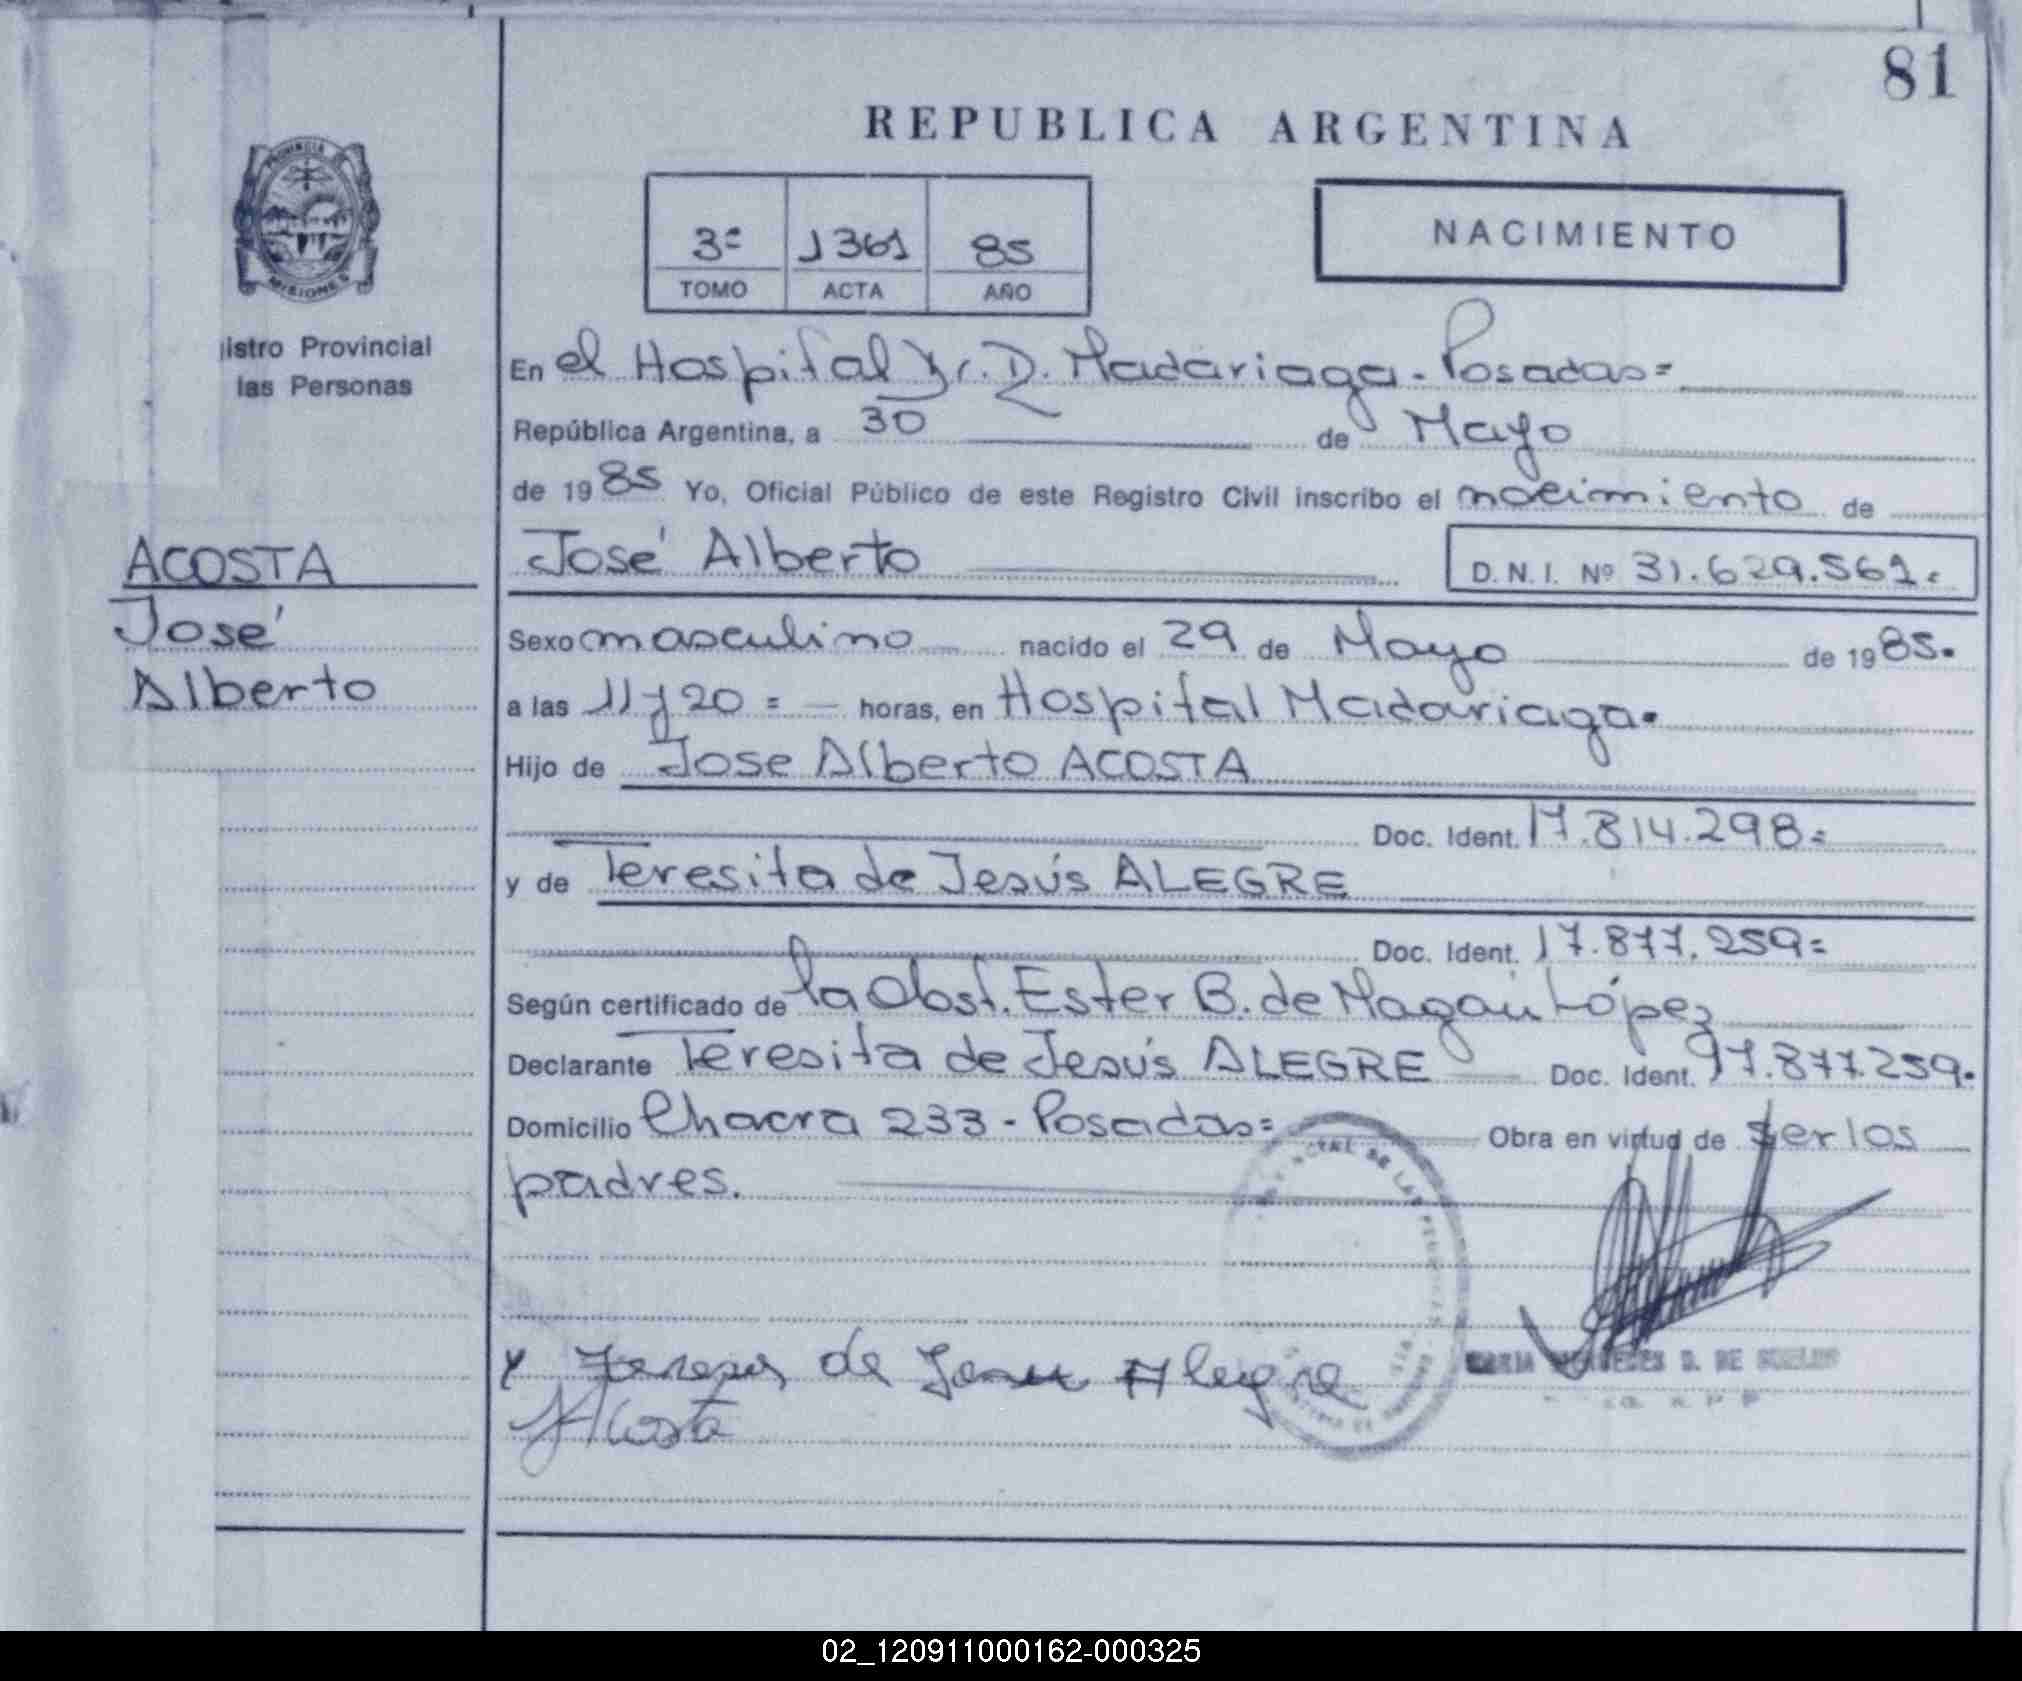 81
REPUBLICA ARGENTINA
PROVINCIA DE
MISIONES
3º 1361 85
TOMO ACTA AÑO
NACIMIENTO
istro Provincial
las Personas
En el Hospital Dr. D. Madariaga - Posadas=
República Argentina, a 30 de Mayo
de 1985 Yo, Oficial Público de este Registro Civil inscribo el nacimiento de
ACOSTA
José
Alberto
José Alberto D. N. I. Nº 31.629.561.=
Sexo masculino nacido el 29 de Mayo de 1985.
a las 11 y 20 = — horas, en Hospital Madariaga.
Hijo de Jose Alberto ACOSTA
Doc. Ident. 17.814.298=
y de Teresita de Jesús ALEGRE
Doc. Ident. 17.877.259=
Según certificado de la Obst. Ester B. de López
Declarante Teresita de Jesús ALEGRE Doc. Ident. 17.877.259.
Domicilio Chacra 233 - Posadas= Obra en virtud de ser los
padres.
de Alegre
Acosta
D. DE
02_120911000162-000325